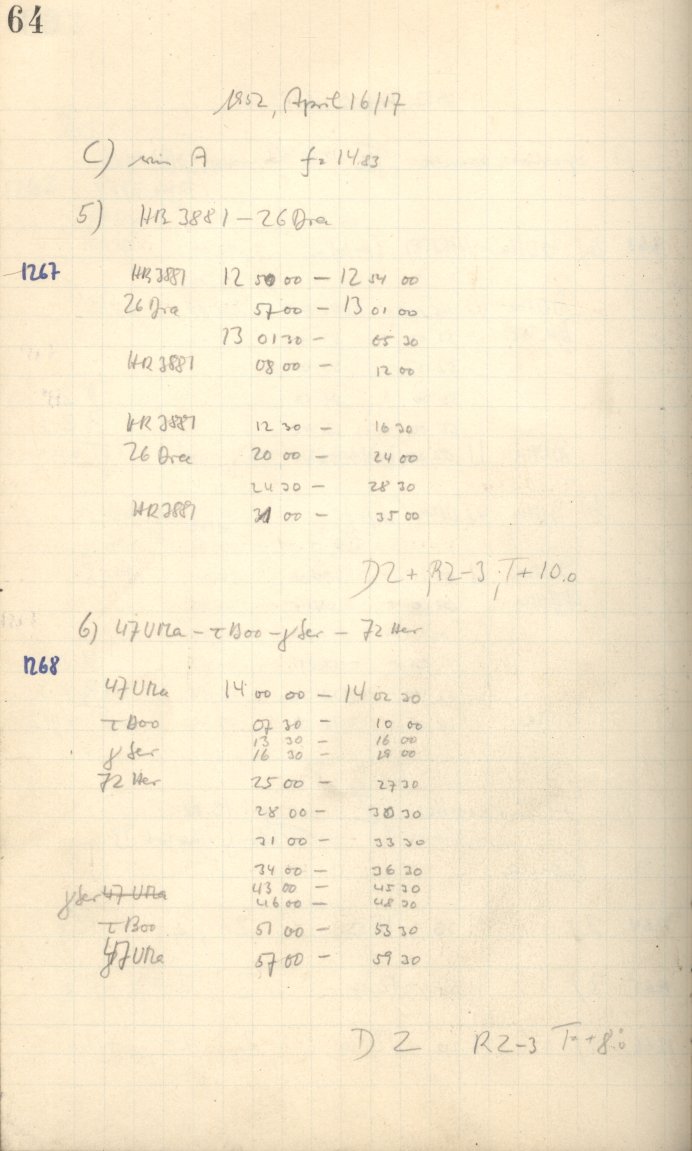 64
1952, April 16/17
C) min A f = 14.83
5) HR 3881 – 26 Dra
1267 HR 3881 12 50 00 – 12 54 00
26 Dra 57 00 – 13 01 00
13 01 30 – 05 30
HR 3881 08 00 – 12 00
HR 3881 12 30 – 16 30
26 Dra 20 00 – 24 00
24 30 – 28 30
HR 3881 31 00 – 35 00
D2+, R2–3, T+10.0
6) 47 UMa – τ Boo – γ Ser – 72 Her
1268
47 UMa 14 00 00 – 14 02 30
τ Boo 07 30 – 10 00
13 30 – 16 00
γ Ser 16 30 – 19 00
72 Her 25 00 – 27 30
28 00 – 30 30
31 00 – 33 30
34 00 – 36 30
43 00 – 45 30
γ Ser 47 UMa 46 00 – 48 30
τ Boo 51 00 – 53 30
47 UMa 57 00 – 59 30
D 2 R2–3 T=+8.0